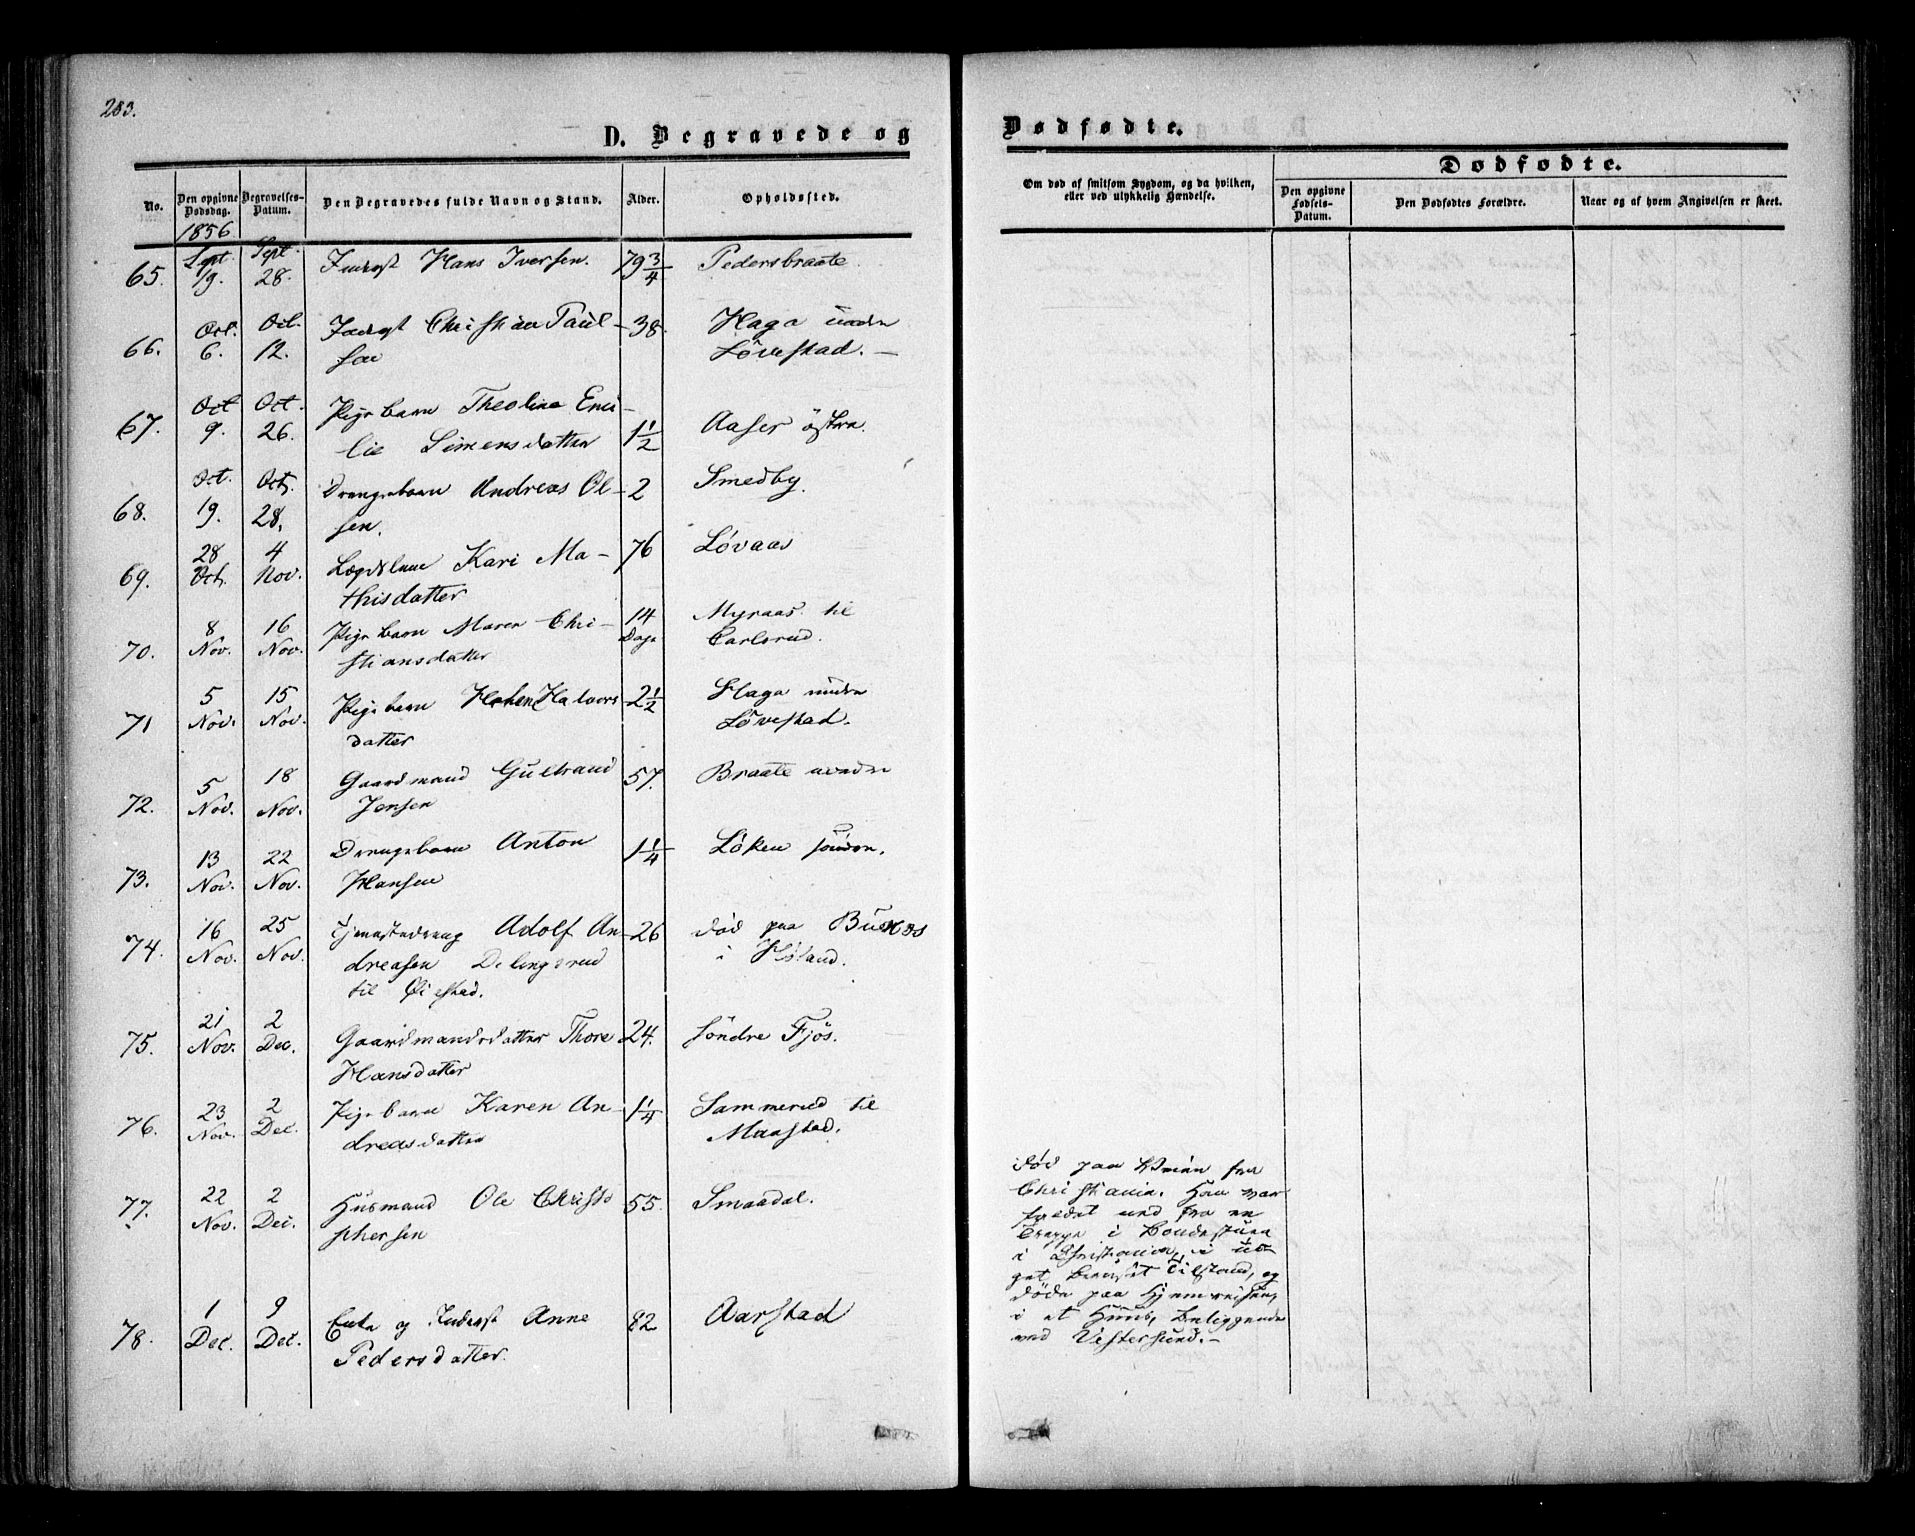 283.
D. Begravede og
No.
Den opgivne Dødsdag.
Begravelses-Datum.
Den Begravedes fulde Navn og Stand.
Alder.
Opholdssted.
1856
65. Sept. 19. Sept. 28. Inderst Hans Iversen. 79 3/4 Pedersbraate
66. Oct. 6. Oct. 12. Inderst Christian Paul- 38 Haga under
sen Lövestad. —
67. Oct 9. Oct. 26. Pigebarn Theoline Emi- 1 1/2 Aaser östre.
lie Simensdatter
68. Oct. 19. Oct. 28. Drengebarn Andreas Ol- 2 Smedby.
sen.
69. 28 Oct. 4 Nov. Lægdslem Kari Ma- 76 Løvaas
thisdatter
70. 8 Nov. 16 Nov. Pigebarn Maren Chri- 14 Dage Myraas til
stiansdatter Carlsrud.
71 5 Nov. 15 Nov. Pigebarn Helene Halvors 2 1/2 Haga under
datter Lövestad.
72. 5 Nov. 18 Nov. Gaardmand Gulbrand 57. Braate nordre
Jensen
73. 13 Nov. 22 Nov. Drengebarn Anton 1 1/4 Löken söndre.
Hansen
74. 16 Nov. 25 Nov. Tjenestedreng Adolf An- 26 död paa
dreasen Delingsrud i Høland.
til Øiestad.
75. 21 Nov. 2 Dec. Gaardmandsdatter Thore 24. söndre Fjös.
Hansdatter
76. 23 Nov. 2 Dec. Pigebarn Karen An- 1 1/4 Sammerud til
dreasdatter Maastad.
77. 22 Nov. 2 Dec. Husmand Ole Christo 55. Smaadal.
phersen
78. 1 Dec. 9 Dec. Enke og Inderst Anne 82 Aarstad
Pedersdatter.
Dødfødte.
Om død af smitsom Sygdom, og da hvilken,
eller ved ulykkelig Hændelse.
Dødfødte.
Den opgivne Fødsels-Datum.
Den Dødfødtes Forældre.
Naar og af hvem Angivelsen er skeet.
död paa Veien fra
Christiania. Han var
faldet ned fra en
Trappe i Bondestuen
i Christiania, i
get beruset Tilstand, og
döde paa Hjemreisen,
i et Huus, beliggende
ved Vestersund. —